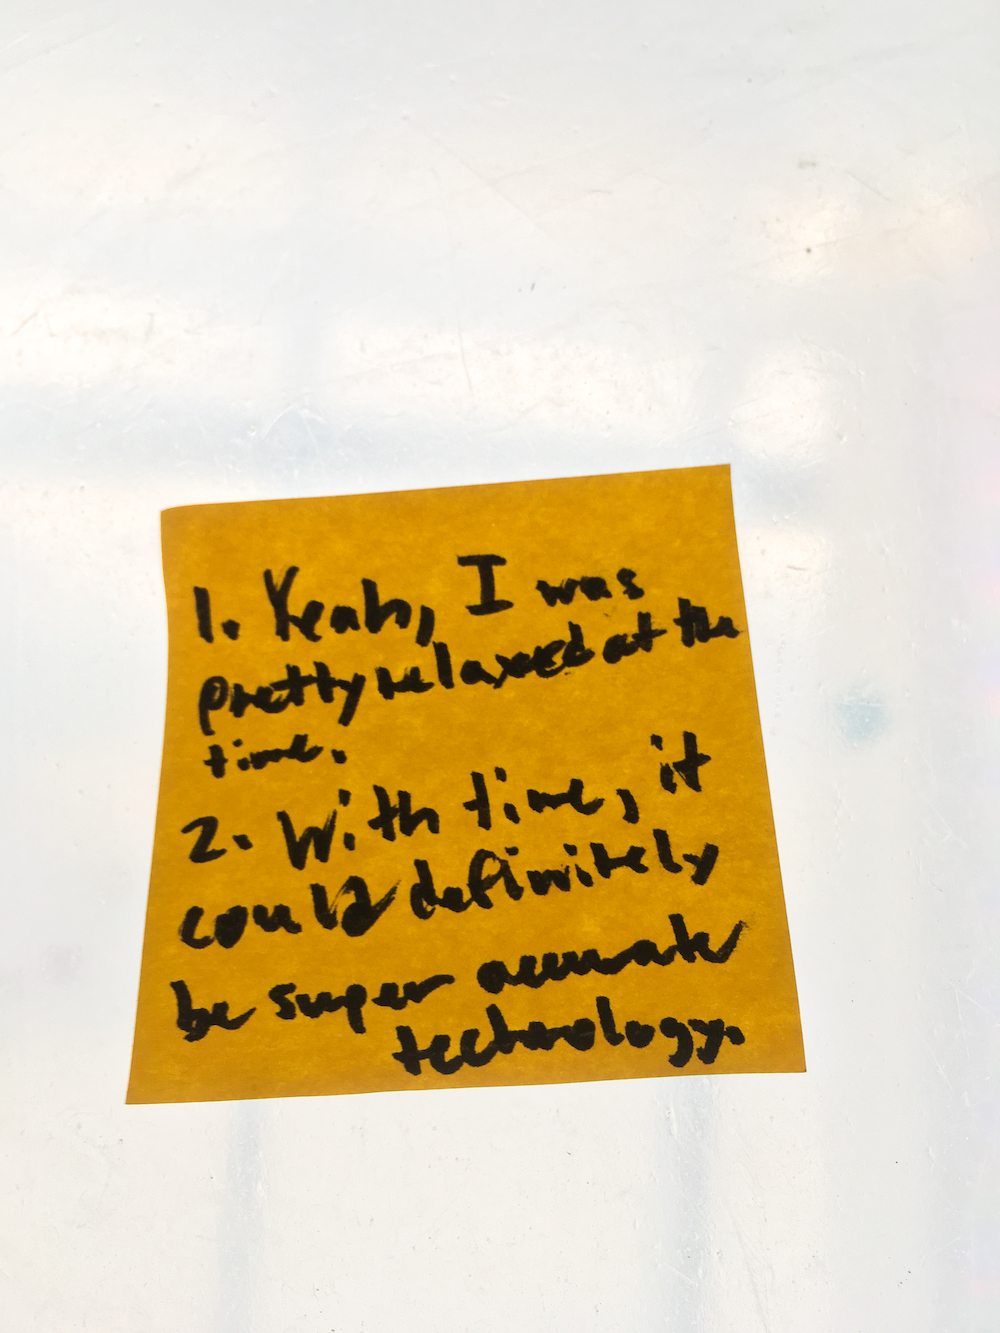 1. Yeah, I was
pretty relaxed at the
time.
2. With time, it
could definitely
be super accurate
technology.